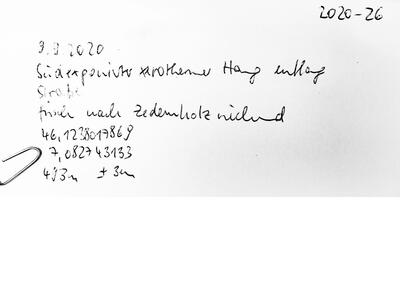 2020-26
9.9.2020
Südexponierter xerothermer Hang entlang
Straße
frisch nach Zedernholz riechend
46,1238017869
7,082743133
483m ±3m